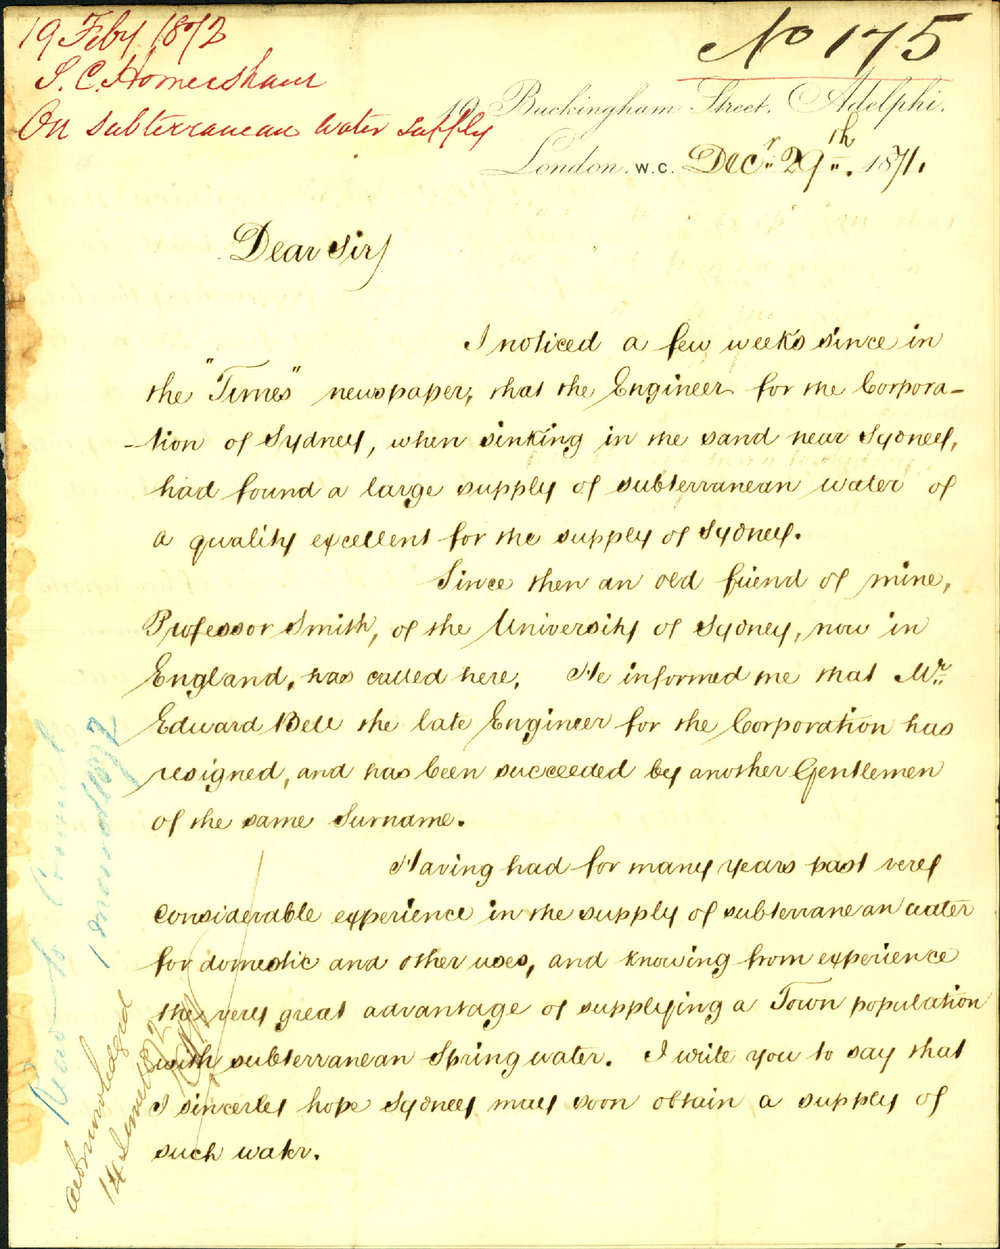 19 Feby 1872
S. C. Homersham
On subterranean water supply
No 175
19, Buckingham Street, Adelphi,
London, W.C. Decr. 29th. 1871.
Dear Sir,
I noticed a few weeks since in
the "Times" newspaper, that the Engineer for the Corpora-
-tion of Sydney, when sinking in the sand near Sydney,
had found a large supply of subterranean water of
a quality excellent for the supply of Sydney.
Since then an old friend of mine,
Professor Smith, of the University of Sydney, now in
England, has called here. He informed me that Mr.
Edward Bell the late Engineer for the Corporation has
resigned, and has been succeeded by another Gentlemen
of the same Surname.
Having had for many years past very
considerable experience in the supply of subterranean water
for domestic and other uses, and knowing from experience
the very great advantage of supplying a Town population
with subterranean Spring water. I write you to say that
I sincerely hope Sydney may soon obtain a supply of
such water.
Read to Council
1 March 1872
acknowledged
14 June 1872